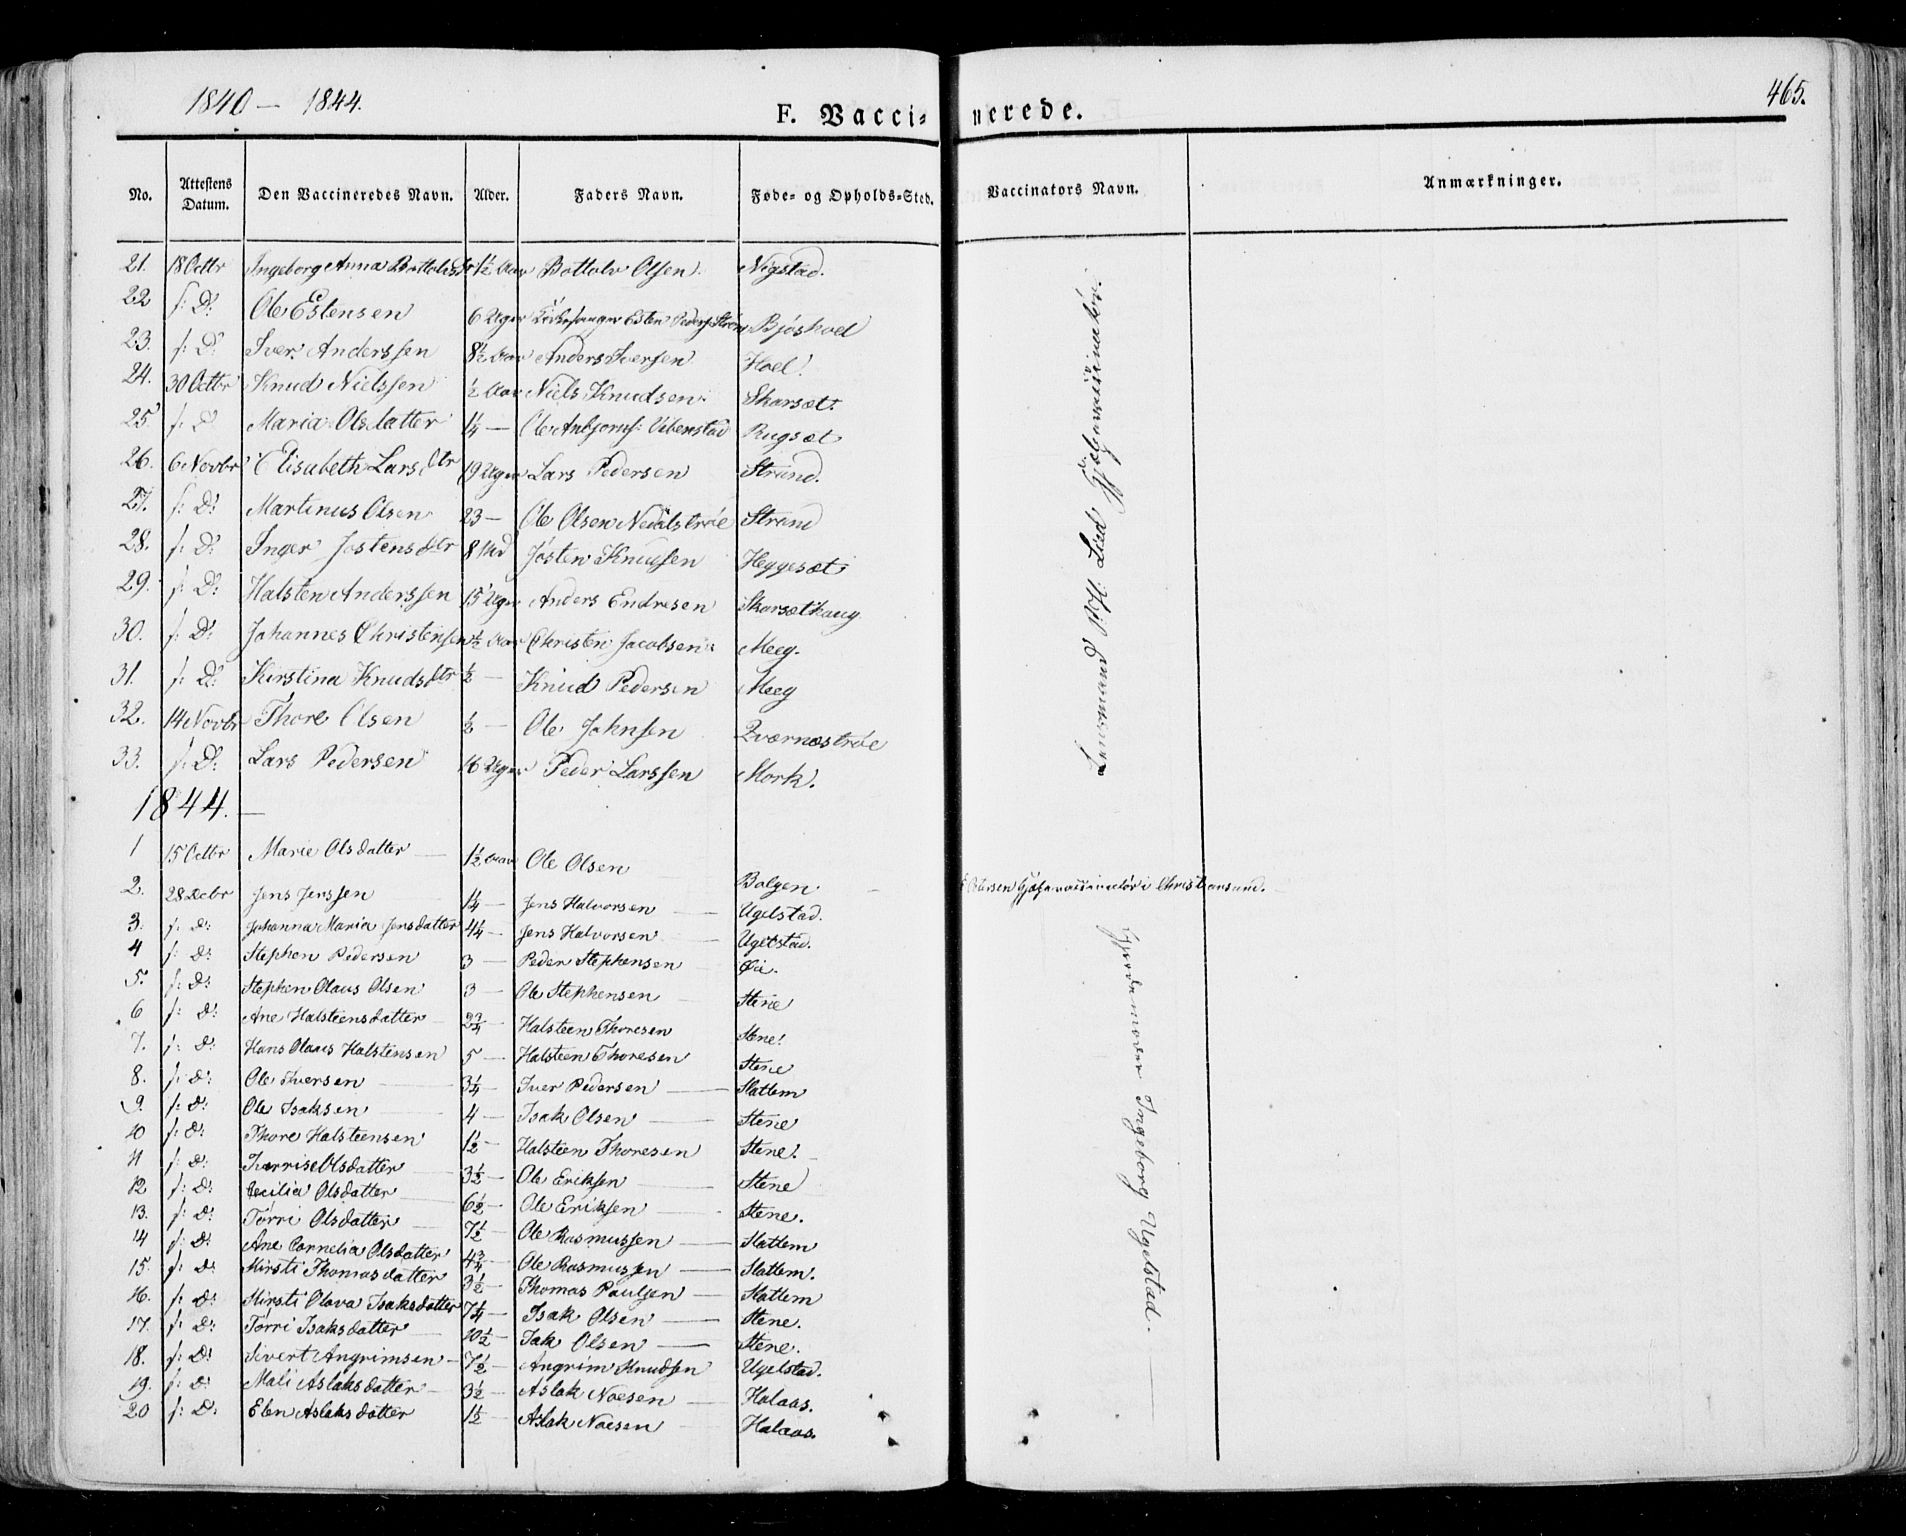 1840 — 1844.
F. Vaccinerede.
465.
No. Attestens Datum. Den Vaccineredes Navn. Alder. Faders Navn. Føde- og Opholds-Sted. Vaccinators Navn. Anmærkninger.
21. 18 Octbr Ingeborg Anna 1½ Aar Bottolv Olsen Nigstad.
22 s: D: Ole Estensen 6 Uger Kirkesanger Esten Peders: Bjøshoel
23. s: D: Iver Anderssen 8½ Aar Anders Iversen Hoel.
24. 30 Octbr Knud Nielssen ½ Aar Niels Knudsen Skarsæt.
25. s: D Maria Olsdatter 1¼ — Ole Anbjørns: Vibenstad Rugsæt
26. 6 Novbr Elisabeth Larsdtr 19 Uger Lars Pedersen Strand.
27. s: D: Martinus Olsen 23 — Ole Olsen Nedalstrøe Strand
28. s: D: Inger Jostensdtr 8 Md Josten Knudsen Heggesæt
29. s: D: Halsten Anderssen 15 Uger Anders Endresen Skarsæthaug
30. s: D: Johannes Christensen ½ Aar Christen Jacobsen Meeg.
31. s: D: Kirstina Knudsdtr ½ — Knud Pedersen Meeg
32. 14 Novbr Thore Olsen ½ — Ole Johnsen Qværnæstrøe
33. s: D: Lars Pedersen 16 Uger Peder Larssen Mork.
Lensmand P. H. Lied Hjelpevaccinatör.
1844. —
1 15 Octbr Marie Olsdatter — 1½ Aar Ole Olsen Bolgen Petersen Hjelpevaccinatör i Christiansund.
2. 28 Decbr Jens Jenssen 1¼ — Jens Halvorsen — Ugelstad.
3. s: D: Johanna Maria Jensdatter 4¼ — Jens Halvorsen — Ugelstad.
4 s: D: Stephen Pedersen 3 — Peder Stephensen — Øie.
5. s: D: Stephen Olaus Olsen 3 — Ole Stephensen — Stene
6 s: D: Ane Halsteensdatter 2¾ — Halsteen Thoresen Stene.
7. s: D: Hans Olaus Halstensen 5 — Halsteen Thoresen Stene
8. s: D: Ole Iversen — 3¼ — Iver Pedersen — Slattem
9. s: D: Ole Isaksen — 4 — Isak Olsen — Stene
10 s: D: Thore Halsteensen 1½ — Halsteen Thoresen Stene.
11 s: D: Olsdatter — 3½ — Ole Eriksen — Stene
12 s: D: Cecilia Olsdatter — 6½ — Ole Eriksen — Stene.
13. s: D: Torri Olsdatter — 7½ — Ole Rasmussen — Slattem
14 s: D: Ane Cornelia Olsdatter 4¾ — Ole Rasmussen — Slattem.
15. s: D: Kirsti Thomasdatter 3½ — Thomas Paulsen — Slattem
16. s: D: Kirsti Olava Isaksdatter 7¼ — Isak Olsen — Stene.
17. s: D: Torri Isaksdatter — 10½ — Isak Olsen — Stene.
18. s: D: Sivert Angrimsen — 7½ — Angrim Knudsen Ugelstad.
19. s: D: Mali Aslaksdatter — 3½ — Aslak Noesen — Halaas.
20 s: D: Elen Aslaksdatter 1½ — Aslak Noesen — Halaas.
Gjordemoder Ingeborg Ugelstad. —